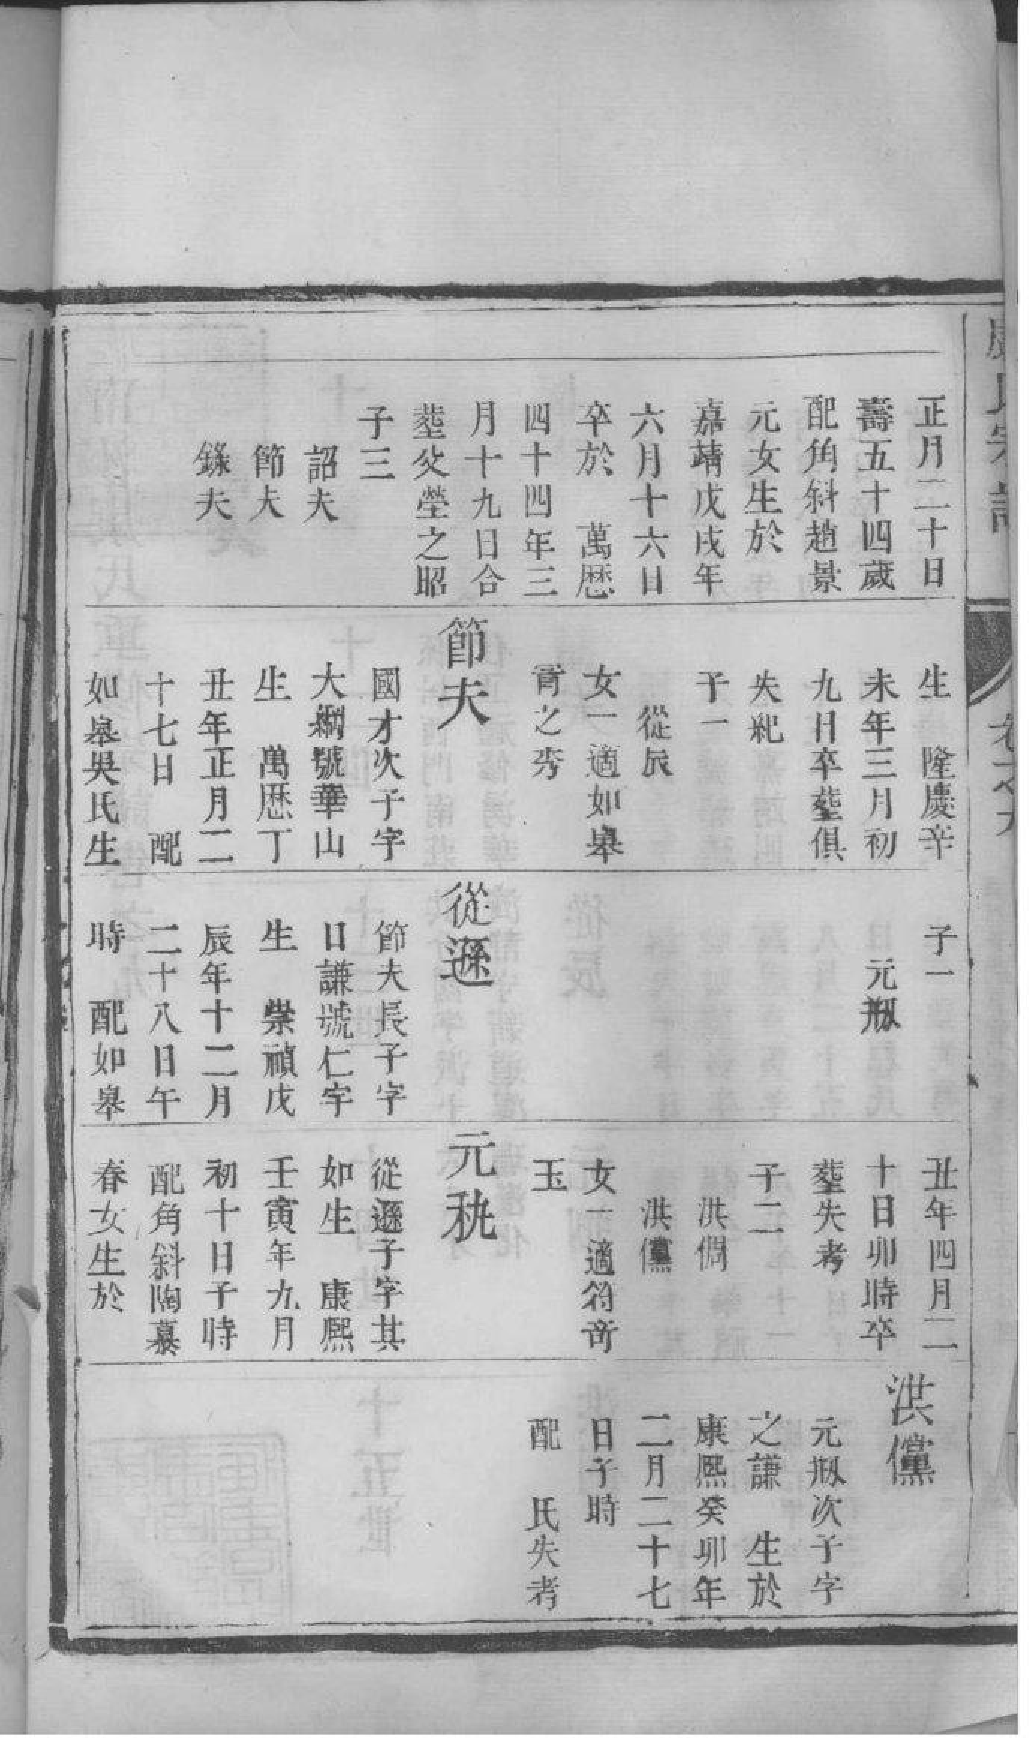 正月二十日
壽五十四歲
配角斜趙景
元女生於
嘉靖戊戌年
六月十六日
卒於 萬歷
四十四年三
月十九日合
塟父塋之昭
子三
詔夫
節夫
錄夫
生 隆慶辛
未年三月初
九日卒塟俱
失紀
子一
從辰
女一適如皋
胥之秀
節夫
國才次子字
大綱號華山
生 萬歷丁
丑年正月二
十七日 配
如皋吳氏生
子一
元瓶
從遜
節夫長子字
日謙號仁宇
生 崇禎戊
辰年十二月
二十八日午
時 配如皋
丑年四月二
十日卯時卒
塟失考
子二
洪倜
洪儻
女一適符奇
玉
元秇
從遜子字其
如生 康熙
壬寅年九月
初十日子時
配角斜陶慕
春女生於
洪儻
元瓶次子字
之謙 生於
康熙癸卯年
二月二十七
日子時
配 氏失考
氏宗譜
卷之九